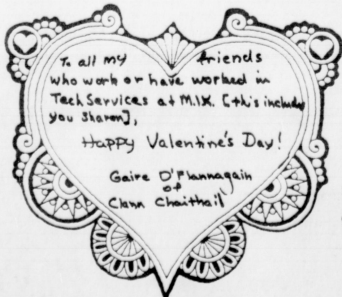 To all my friends
who work or have worked in
Tech Services at M.I.X. [this includes
you Sharon],
Happy Valentine's Day!
Gaire O'Flannagain
of
Clann Chaithail